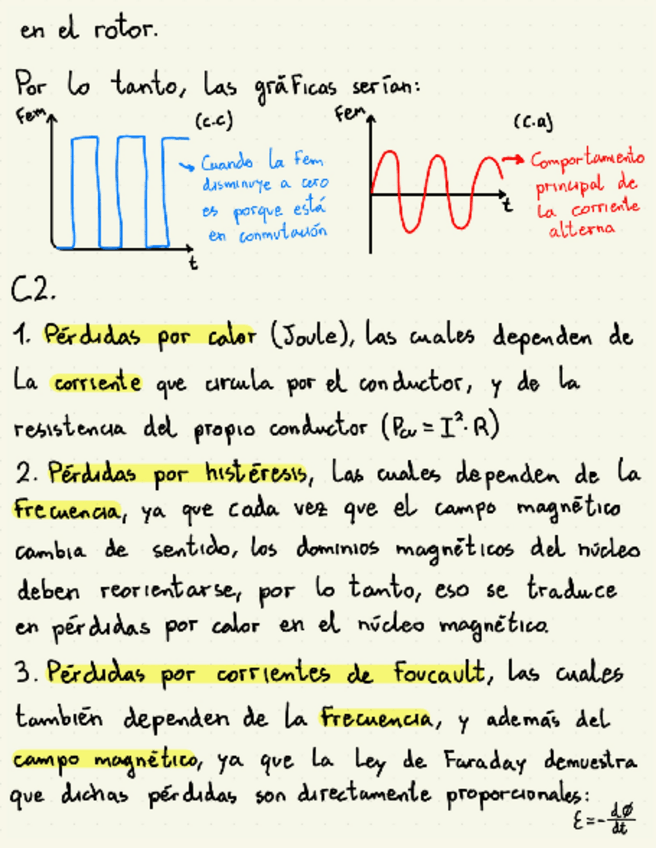 en el rotor.
Por lo tanto, las gráficas serían:
Fem
(c.c)
Cuando la Fem
disminuye a cero
es porque está
en conmutación
t
Fem
(c.a)
Comportamiento
principal de
la corriente
alterna
t
C2.
1. Pérdidas por calor (Joule), las cuales dependen de
la corriente que circula por el conductor, y de la
resistencia del propio conductor (Pcu = I²·R)
2. Pérdidas por histéresis, las cuales dependen de la
frecuencia, ya que cada vez que el campo magnético
cambia de sentido, los dominios magnéticos del núcleo
deben reorientarse, por lo tanto, eso se traduce
en pérdidas por calor en el núcleo magnético.
3. Pérdidas por corrientes de Foucault, las cuales
también dependen de la frecuencia, y además del
campo magnético, ya que la Ley de Faraday demuestra
que dichas pérdidas son directamente proporcionales:
ε = - dφ/dt